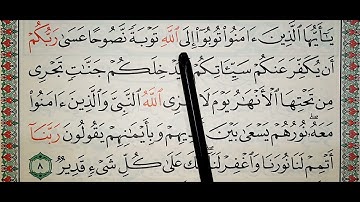 يَٰٓأَيُّهَا ٱلَّذِينَ ءَامَنُوا۟ تُوبُوٓا۟ إِلَى ٱللَّهِ تَوْبَةً نَّصُوحًا عَسَىٰ رَبُّكُمْ
أَن يُكَفِّرَ عَنكُمْ سَيِّـَٔاتِكُمْ جَنَّٰتٍ تَجْرِى
مِن تَحْتِهَا ٱلْأَنْهَٰرُ يَوْمَ لَا ٱللَّهُ ٱلنَّبِىَّ وَٱلَّذِينَ ءَامَنُوا۟
مَعَهُۥ نُورُهُمْ يَسْعَىٰ بَيْنَ وَبِأَيْمَٰنِهِمْ يَقُولُونَ رَبَّنَآ
أَتْمِمْ لَنَا نُورَنَا وَٱغْفِرْ لَنَآ عَلَىٰ كُلِّ شَىْءٍ قَدِيرٌ ٨